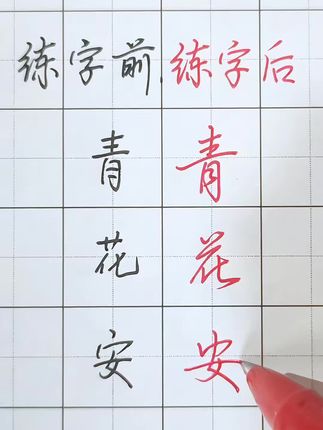 练字前,练字后
青 青
花 花
安 安